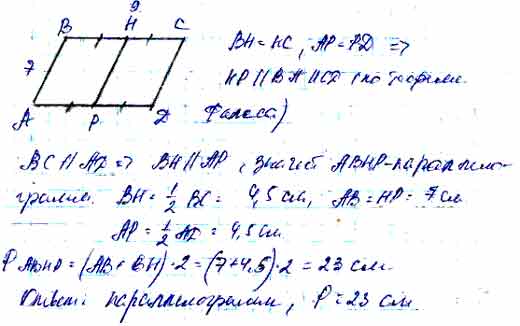 9
B H C
7
A P D
BH = HC, AP = PD =>
HP || BA || CD (по теореме
Фалеса)
BC || AD => BH || AP, значит ABHP - параллело-
грамм. BH = 1/2 BC = 4,5 см, AB = HP = 7 см
AP = 1/2 AD = 4,5 см
P ABHP = (AB + BH) · 2 = (7 + 4,5) · 2 = 23 см
Ответ: параллелограмм, P = 23 см